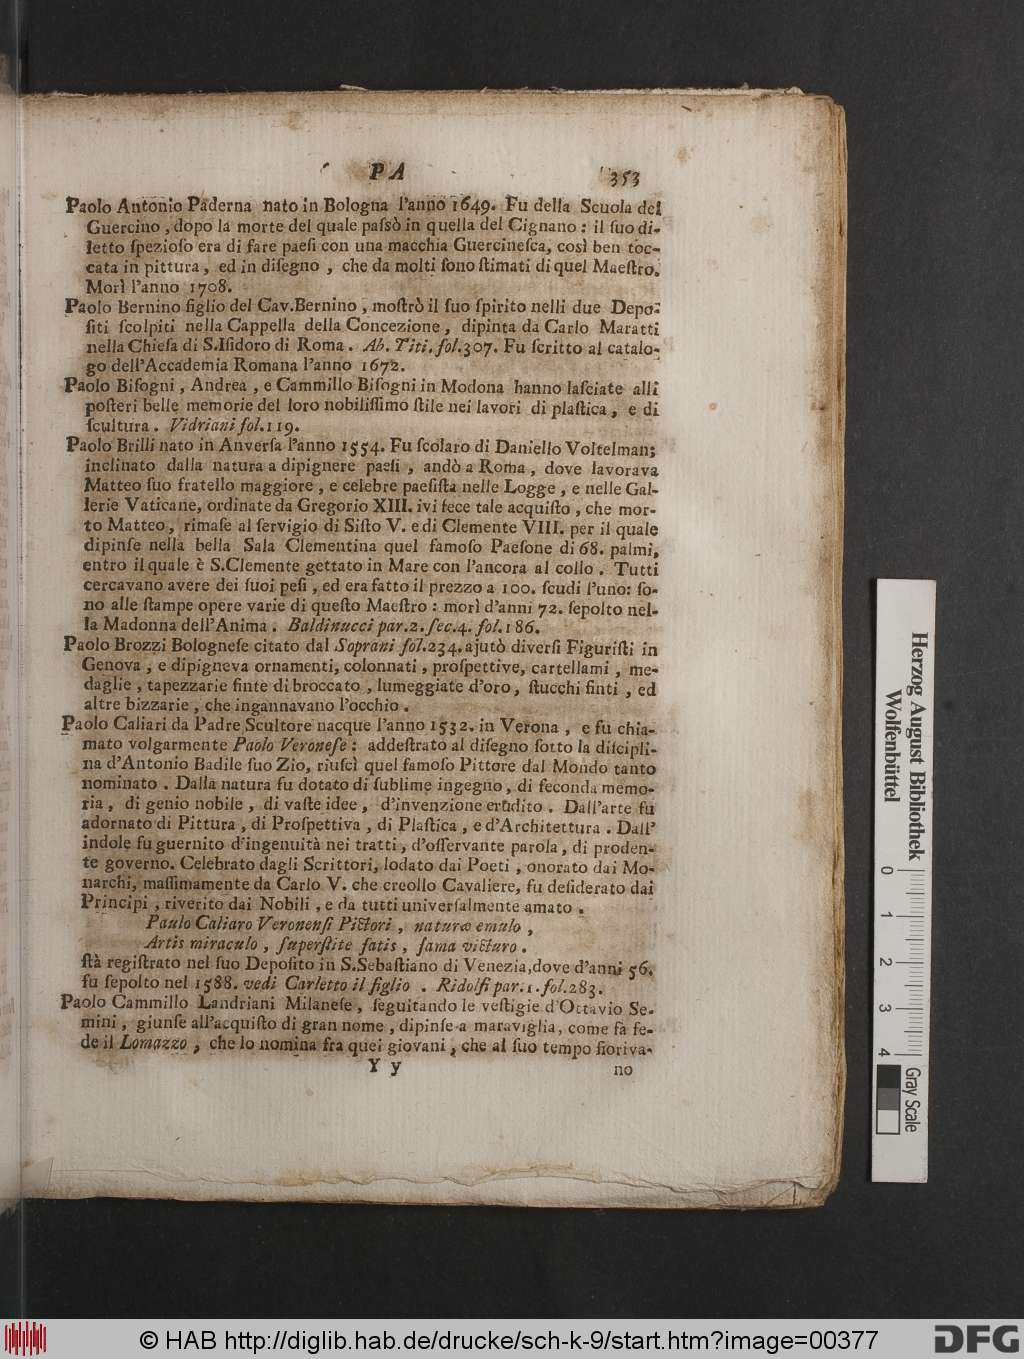 PA 353
Paolo Antonio Paderna nato in Bologna l'anno 1649. Fu della Scuola del
Guercino , dopo la morte del quale paſsò in quella del Cignano : il ſuo di-
letto ſpezioſo era di fare paeſi con una macchia Guercineſca, così ben toc-
cata in pittura , ed in diſegno , che da molti ſono ſtimati di quel Maeſtro.
Morì l'anno 1708.
Paolo Bernino figlio del Cav.Bernino , moſtrò il ſuo ſpirito nelli due Depo-
ſiti ſcolpiti nella Cappella della Concezione , dipinta da Carlo Maratti
nella Chieſa di S.Iſidoro di Roma . Ab. Titi. fol.307. Fu ſcritto al catalo-
go dell'Accademia Romana l'anno 1672.
Paolo Biſogni , Andrea , e Cammillo Biſogni in Modona hanno laſciate alli
poſteri belle memorie del loro nobiliſſimo ſtile nei lavori di plaſtica , e di
ſcultura . Vidriani fol.119.
Paolo Brilli nato in Anverſa l'anno 1554. Fu ſcolaro di Daniello Voltelman;
inclinato dalla natura a dipignere paeſi , andò a Roma , dove lavorava
Matteo ſuo fratello maggiore , e celebre paeſiſta nelle Logge , e nelle Gal-
lerie Vaticane, ordinate da Gregorio XIII. ivi fece tale acquiſto , che mor-
to Matteo , rimaſe al ſervigio di Siſto V. e di Clemente VIII. per il quale
dipinſe nella bella Sala Clementina quel famoſo Paeſone di 68. palmi,
entro il quale è S.Clemente gettato in Mare con l'ancora al collo . Tutti
cercavano avere dei ſuoi peſi , ed era fatto il prezzo a 100. ſcudi l'uno: ſo-
no alle ſtampe opere varie di queſto Maeſtro : morì d'anni 72. ſepolto nel-
la Madonna dell'Anima . Baldinucci par.2. ſec.4. fol.186.
Paolo Brozzi Bologneſe citato dal Soprani fol.234. ajutò diverſi Figuriſti in
Genova , e dipigneva ornamenti, colonnati , proſpettive, cartellami , me-
daglie , tapezzarie finte di broccato , lumeggiate d'oro, ſtucchi finti , ed
altre bizzarie , che ingannavano l'occhio .
Paolo Caliari da Padre Scultore nacque l'anno 1532. in Verona , e fu chia-
mato volgarmente Paolo Veroneſe : addeſtrato al diſegno ſotto la diſcipli-
na d'Antonio Badile ſuo Zio, riuſcì quel famoſo Pittore dal Mondo tanto
nominato . Dalla natura fu dotato di ſublime ingegno , di feconda memo-
ria , di genio nobile , di vaſte idee , d'invenzione erudito . Dall'arte fu
adornato di Pittura , di Proſpettiva , di Plaſtica , e d'Architettura . Dall'
indole fu guernito d'ingenuità nei tratti , d'oſſervante parola , di pruden-
te governo. Celebrato dagli Scrittori, lodato dai Poeti , onorato dai Mo-
narchi, maſſimamente da Carlo V. che creollo Cavaliere, fu deſiderato dai
Principi , riverito dai Nobili , e da tutti univerſalmente amato .
Paulo Caliaro Veronenſi Pictori , naturæ emulo ,
Artis miraculo , ſuperſtite fatis , fama victuro .
ſtà regiſtrato nel ſuo Depoſito in S.Sebaſtiano di Venezia,dove d'anni 56.
fu ſepolto nel 1588. vedi Carletto il figlio . Ridolfi par.1.fol.283.
Paolo Cammillo Landriani Milaneſe , ſeguitando le veſtigie d'Ottavio Se-
mini , giunſe all'acquiſto di gran nome , dipinſe a maraviglia, come fa fe-
de il Lomazzo , che lo nomina fra quei giovani , che al ſuo tempo fioriva-
Y y no
Herzog August Bibliothek
Wolfenbüttel
0 1 2 3 4
Gray Scale
© HAB http://diglib.hab.de/drucke/sch-k-9/start.htm?image=00377
DFG